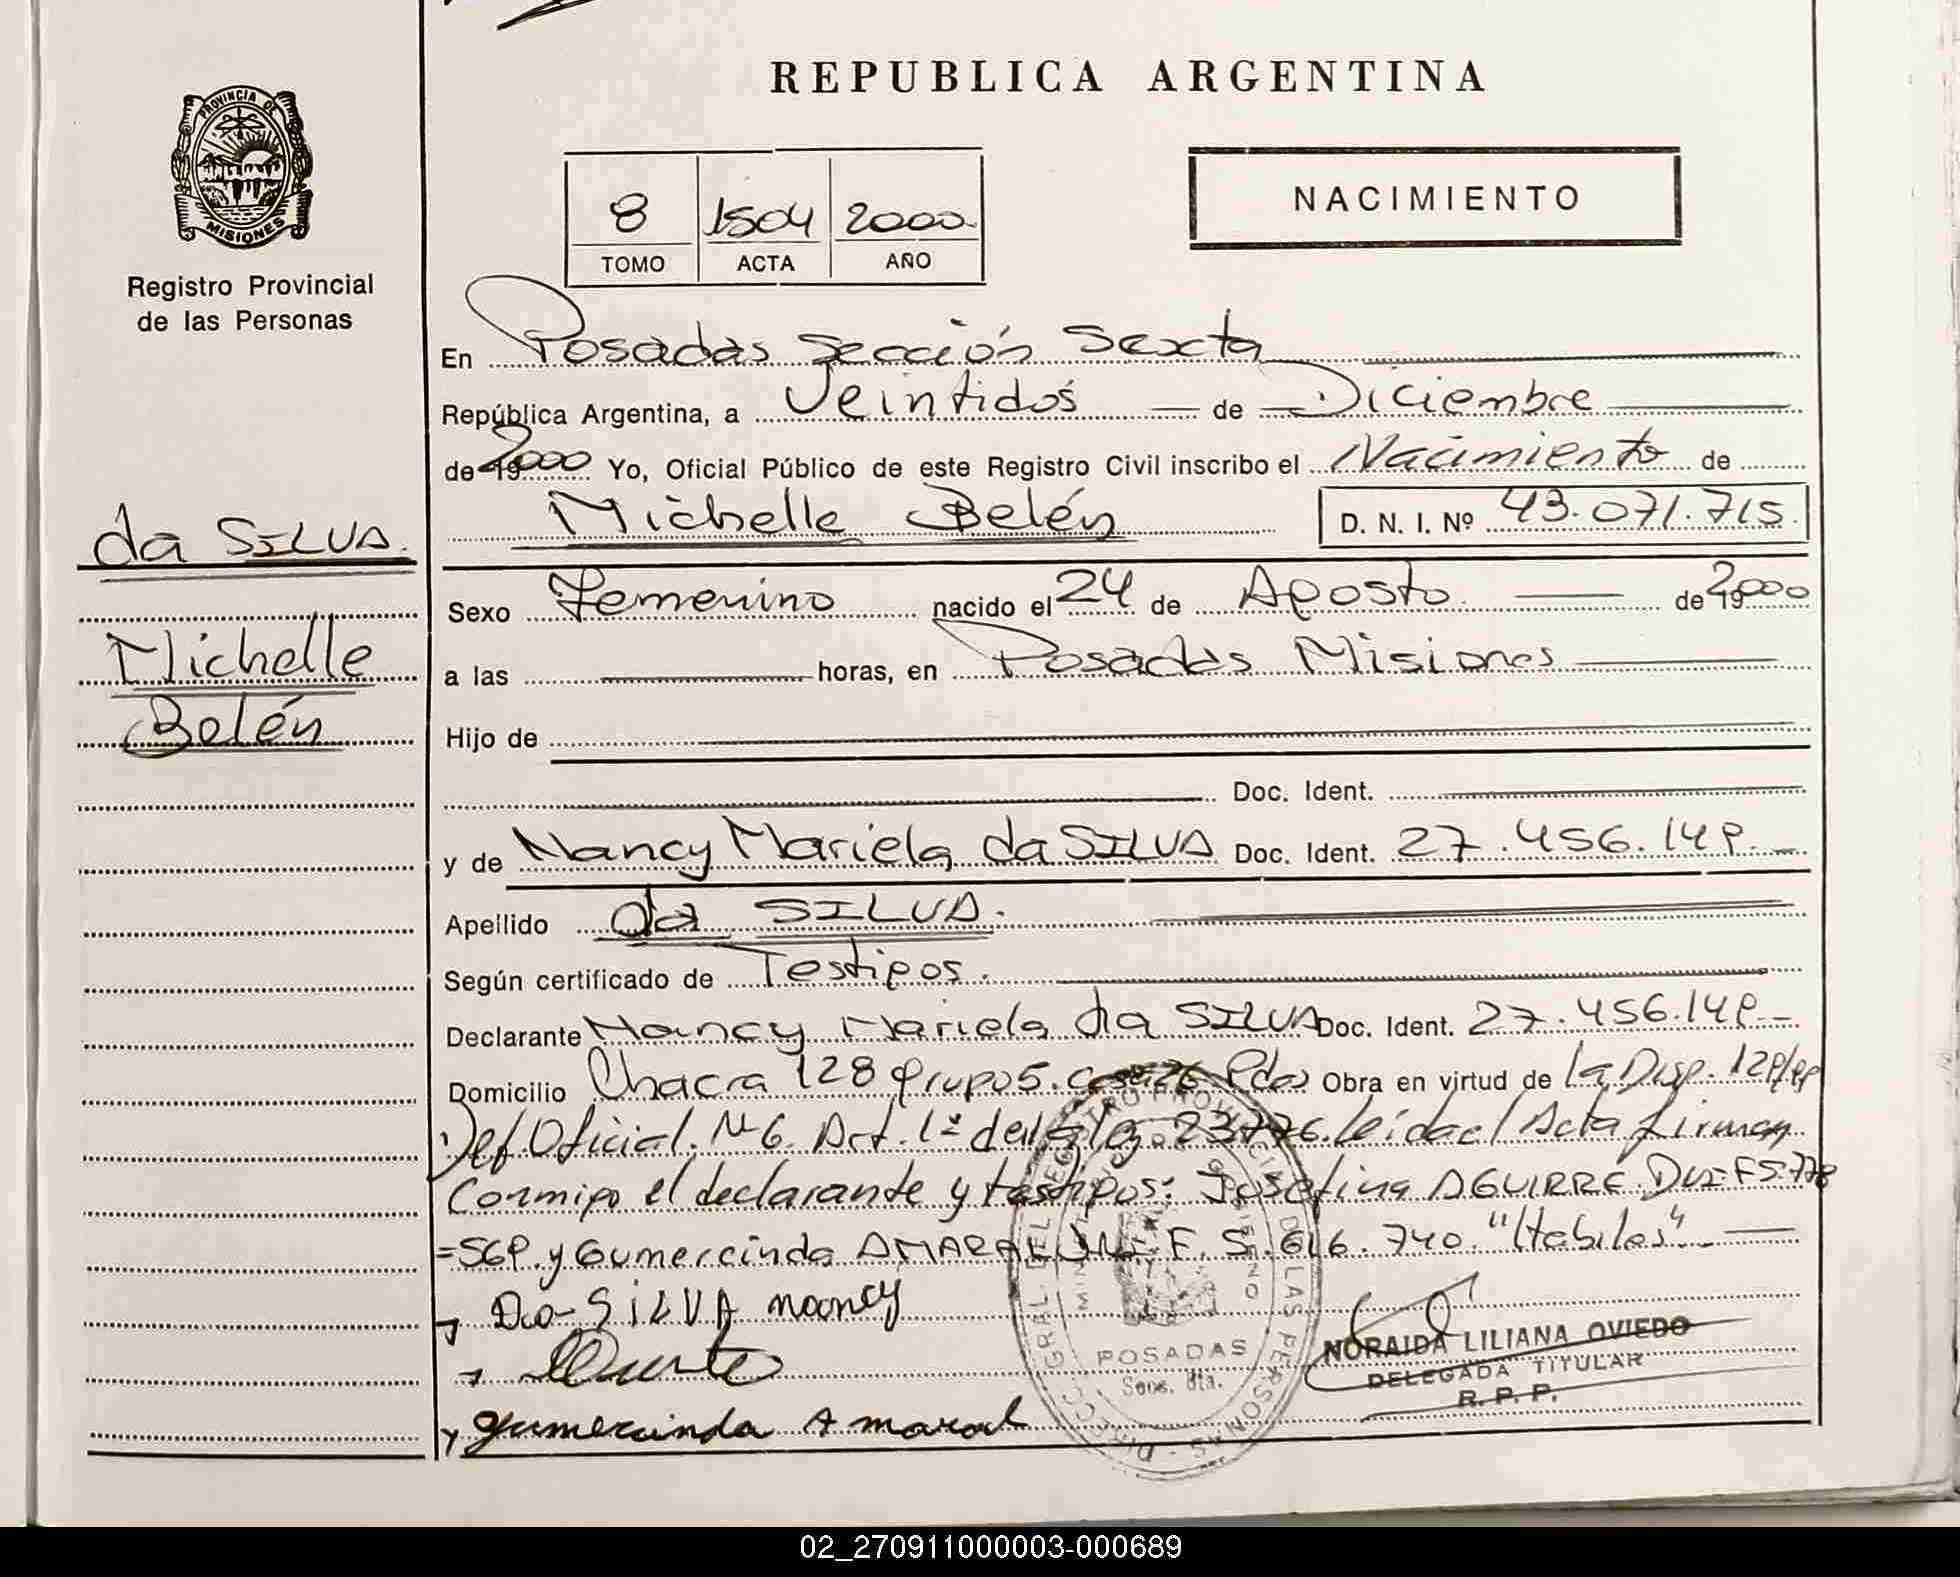 REPUBLICA ARGENTINA
PROVINCIA DE
MISIONES
Registro Provincial
de las Personas
8 1504 2000
TOMO ACTA AÑO
NACIMIENTO
En Posadas Sección Sexta
República Argentina, a Veintidos de Diciembre
de 2000 Yo, Oficial Público de este Registro Civil inscribo el Nacimiento de
Michelle Belén D. N. I. Nº 43.071.715
da SILVA.
Michelle
Belén
Sexo Femenino nacido el 24 de Agosto de 2000
a las horas, en Posadas Misiones
Hijo de
Doc. Ident.
y de Nancy Mariela da SILVA Doc. Ident. 27.456.149
Apellido da SILVA.
Según certificado de Testigos.
Declarante Nancy Mariela da SILVA Doc. Ident. 27.456.149
Domicilio Chacra 128 grupo 5. casa 26 Pdas Obra en virtud de la Disp. 129/99
Def. Oficial. Nº 6. Art. 1º de la 23776. leída el Acta firman
Conmigo el declarante y testigos: Josefina AGUIRRE DNI F5.778
=569. y Gumercinda AMARAL DNI. F. 5. 616. 740. "Habiles".
Da SILVA nancy
gumercinda Amaral
POSADAS
NORAIDA LILIANA OVIEDO
DELEGADA TITULAR
R. P. P.
02_270911000003-000689